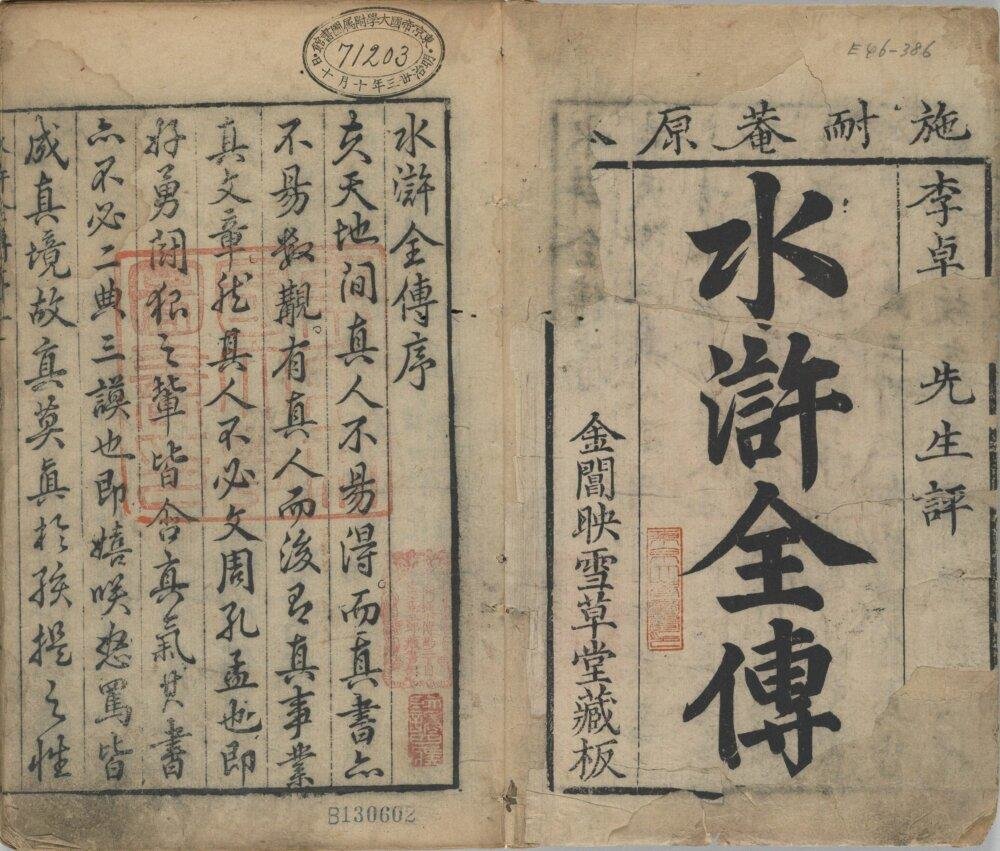 E46-386
施耐菴原
李卓 先生評
水滸全傳
金閶映雪草堂藏板
東京帝國大學附屬圖書館
71203
明治卅三年十月十日
水滸全傳序
夫天地間真人不易得而真書亦
不易數覯。有真人而後有真事業
真文章然其人不必文周孔孟也即
好勇鬪狠之輩皆含真氣其書
亦不必二典三謨也即嬉咲怒罵皆
成真境故真莫眞於孩提之性
B130602